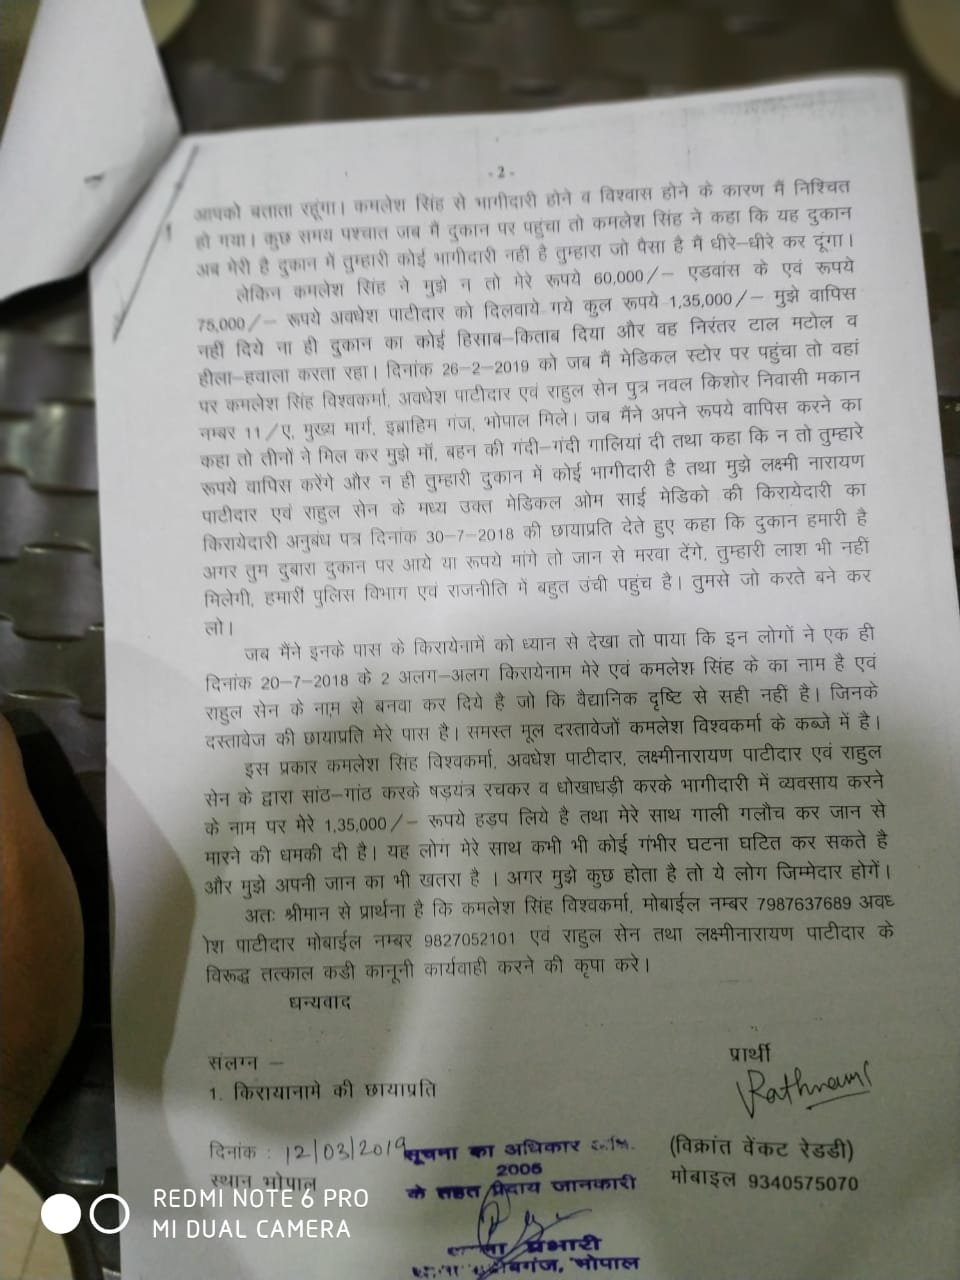 - 2 -
आपको बताता रहूंगा। कमलेश सिंह से भागीदारी होने व विश्वास होने के कारण मैं निश्चित
हो गया। कुछ समय पश्चात जब मैं दुकान पर पहुंचा तो कमलेश सिंह ने कहा कि यह दुकान
अब मेरी है दुकान में तुम्हारी कोई भागीदारी नहीं है तुम्हारा जो पैसा है मैं धीरे-धीरे कर दूंगा।
लेकिन कमलेश सिंह ने मुझे न तो मेरे रूपये 60,000/- एडवांस के एवं रूपये
75,000/- रूपये अवधेश पाटीदार को दिलवाये गये कुल रूपये 1,35,000/- मुझे वापिस
नहीं दिये ना ही दुकान का कोई हिसाब-किताब दिया और वह निरंतर टाल मटोल व
हीला-हवाला करता रहा। दिनांक 26-2-2019 को जब मैं मेडिकल स्टोर पर पहुंचा तो वहां
पर कमलेश सिंह विश्वकर्मा, अवधेश पाटीदार एवं राहुल सेन पुत्र नवल किशोर निवासी मकान
नम्बर 11/ए, मुख्य मार्ग, इब्राहिम गंज, भोपाल मिले। जब मैंने अपने रूपये वापिस करने का
कहा तो तीनों ने मिल कर मुझे मॉ, बहन की गंदी-गंदी गालियां दी तथा कहा कि न तो तुम्हारे
रूपये वापिस करेंगे और न ही तुम्हारी दुकान में कोई भागीदारी है तथा मुझे लक्ष्मी नारायण
पाटीदार एवं राहुल सेन के मध्य उक्त मेडिकल ओम साई मेडिको की किरायेदारी का
किरायेदारी अनुबंध पत्र दिनांक 30-7-2018 की छायाप्रति देते हुए कहा कि दुकान हमारी है
अगर तुम दुबारा दुकान पर आये या रूपये मांगे तो जान से मरवा देंगे, तुम्हारी लाश भी नहीं
मिलेगी, हमारी पुलिस विभाग एवं राजनीति में बहुत उंची पहुंच है। तुमसे जो करते बने कर
लो।
जब मैंने इनके पास के किरायेनामें को ध्यान से देखा तो पाया कि इन लोगों ने एक ही
दिनांक 20-7-2018 के 2 अलग-अलग किरायेनाम मेरे एवं कमलेश सिंह के का नाम है एवं
राहुल सेन के नाम से बनवा कर दिये है जो कि वैद्यानिक दृष्टि से सही नहीं है। जिनके
दस्तावेज की छायाप्रति मेरे पास है। समस्त मूल दस्तावेजों कमलेश विश्वकर्मा के कब्जे में है।
इस प्रकार कमलेश सिंह विश्वकर्मा, अवधेश पाटीदार, लक्ष्मीनारायण पाटीदार एवं राहुल
सेन के द्वारा सांठ-गांठ करके षड़यंत्र रचकर व धोखाधड़ी करके भागीदारी में व्यवसाय करने
के नाम पर मेरे 1,35,000/- रूपये हड़प लिये है तथा मेरे साथ गाली गलौच कर जान से
मारने की धमकी दी है। यह लोग मेरे साथ कभी भी कोई गंभीर घटना घटित कर सकते है
और मुझे अपनी जान का भी खतरा है । अगर मुझे कुछ होता है तो ये लोग जिम्मेदार होगें।
अतः श्रीमान से प्रार्थना है कि कमलेश सिंह विश्वकर्मा, मोबाईल नम्बर 7987637689 अवध
ेश पाटीदार मोबाईल नम्बर 9827052101 एवं राहुल सेन तथा लक्ष्मीनारायण पाटीदार के
विरूद्ध तत्काल कडी कानूनी कार्यवाही करने की कृपा करे।
धन्यवाद
संलग्न -
प्रार्थी
1. किरायानामे की छायाप्रति
VRathnam
दिनांक : 12/03/2019
सूचना का अधिकार
(विक्रांत वेंकट रेडडी)
2005
स्थान भोपाल
के तहत प्रदाय जानकारी
मोबाइल 9340575070
प्रभारी
भोपाल
REDMI NOTE 6 PRO
MI DUAL CAMERA